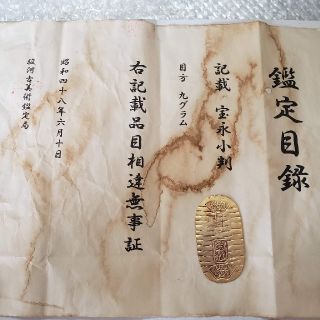 鑑定目録
記載 宝永小判
目方 九グラム
右記載品目相違無事証
昭和四十八年六月十日
駿河古美術鑑定局